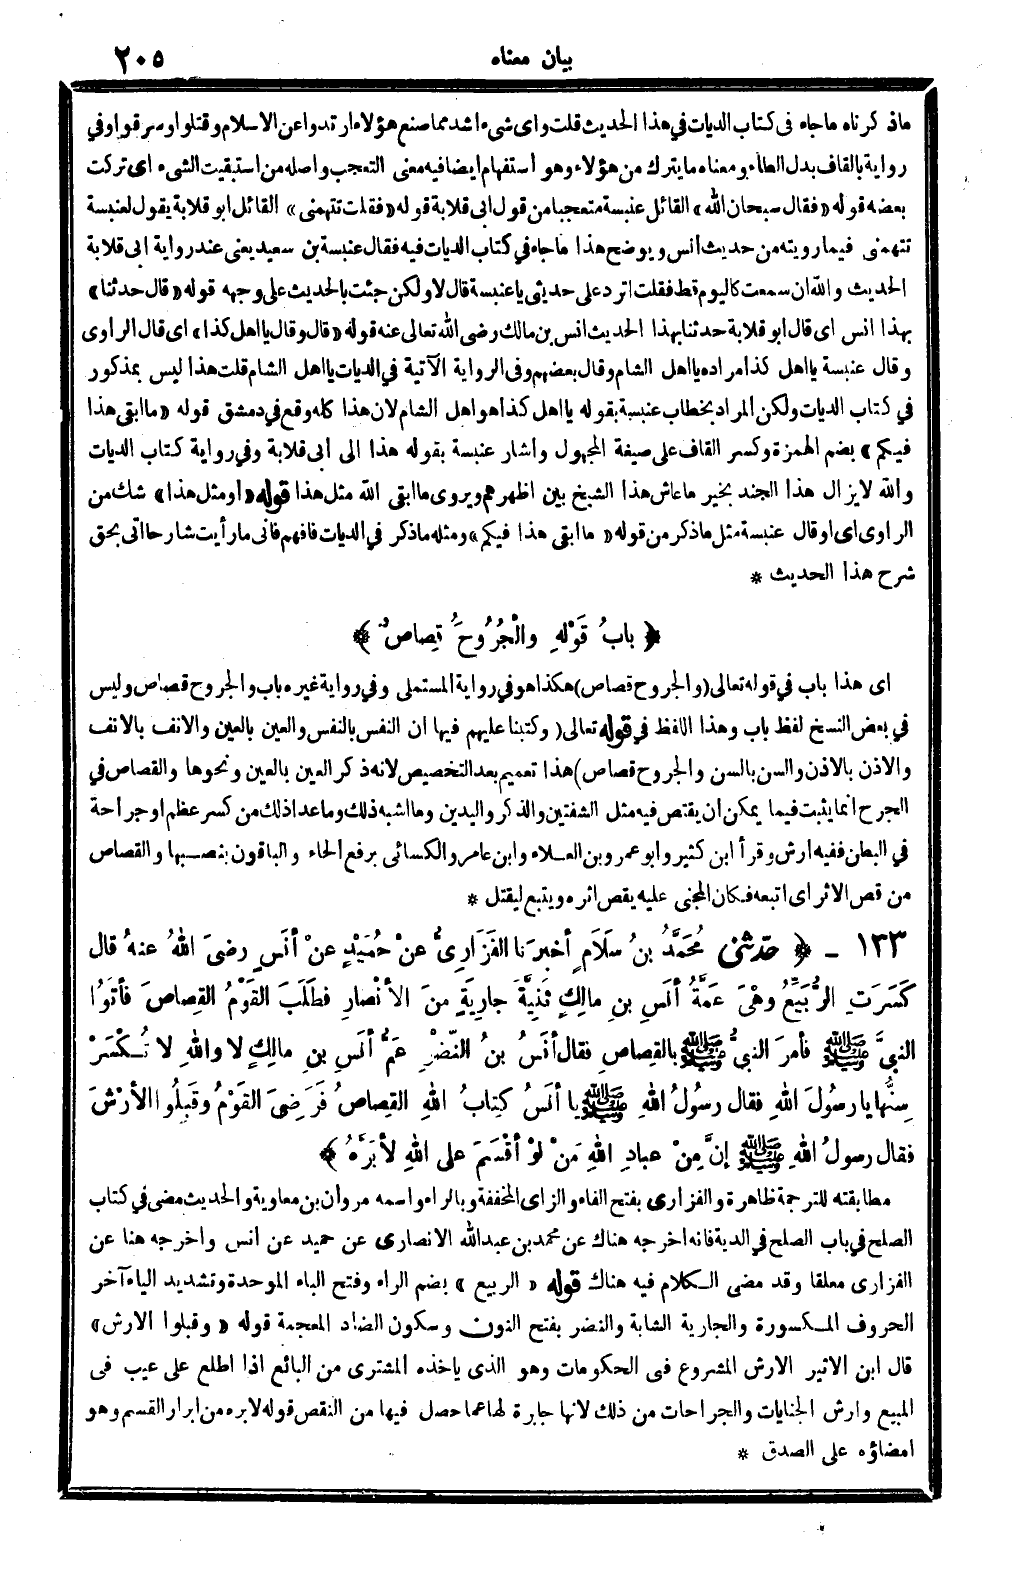 بيان معناه ٢٠٥
ماذكرناه ماجاء فى كتاب الديات في هذا الحديث قلت واى شىء اشد مما صنع هؤلاء ارتدوا عن الاسلام وقتلوا وسرقوا وفي
رواية بالقاف بدل الطاء ومعناه ما يترك من هؤلاء وهو أستفهام ايضا فيه معنى التعجب واصله من استبقيت الشىء اى تركت
بعضه قوله «فقال سبحان الله» القائل عنبسة متعجبا من قول ابى قلابة قوله «فقلت تتهمنى» القائل ابو قلابة يقول لعنبسة
تتهمنى فيما رويته من حديث انس ويوضح هذا ماجاء في كتاب الديات فيه فقال عنبسة بن سعيد يعنى عند رواية ابى قلابة
الحديث والله ان سمعت كاليوم قط فقلت اترد على حديثى يا عنبسة قال لا ولكن جئت بالحديث على وجهه قوله «قال حدثنا»
بهذا انس اى قال ابو قلابة حدثنا بهذا الحديث انس بن مالك رضى الله تعالى عنه قوله «قال وقال يا اهل كذا» اى قال الراوى
وقال عنبسة يا اهل كذا مراده يا اهل الشام وقال بعضهم وفى الرواية الآتية في الديات يا اهل الشام قلت هذا ليس بمذكور
في كتاب الديات ولكن المراد بخطاب عنبسة بقوله يا اهل كذا هو اهل الشام لان هذا كله وقع في دمشق قوله «ما ابقى هذا
فيكم» بضم الهمزة وكسر القاف على صيغة المجهول واشار عنبسة بقوله هذا الى ابى قلابة وفي رواية كتاب الديات
والله لايزال هذا الجند بخير ماعاش هذا الشيخ بين اظهرهم ويروى ما ابقى الله مثل هذا قوله «او مثل هذا» شك من
الراوى اى او قال عنبسة مثل ماذكر من قوله «ما ابقى هذا فيكم» ومثله ماذكر في الديات فافهم فانى ما رأيت شارحا اتى بحق
شرح هذا الحديث *
﴿ بابُ قَوْلِهِ والْجُرُوحَُ قِصاصٌ ﴾
اى هذا باب في قوله تعالى (والجروح قصاص) هكذا هو في رواية المستملى وفي رواية غيره باب والجروح قصاص وليس
في بعض النسخ لفظ باب وهذا اللفظ في قوله تعالى (وكتبنا عليهم فيها ان النفس بالنفس والعين بالعين والانف بالانف
والاذن بالاذن والسن بالسن والجروح قصاص) هذا تعميم بعد التخصيص لانه ذكر العين بالعين ونحوها والقصاص في
الجرح انما يثبت فيما يمكن ان يقتص فيه مثل الشفتين والذكر واليدين وما اشبه ذلك وما عدا ذلك من كسر عظم او جراحة
في البطن ففيه ارش وقرأ ابن كثير وابو عمرو بن العلاء وابن عامر والكسائى برفع الحاء والباقون بنصبها والقصاص
من قص الاثر اى اتبعه فكان المجنى عليه يقص اثره ويتبع ليقتل *
١٣٣ ـ ﴿ حدثنى مُحَمَّدُ بنُ سَلَامٍ أخبرنا الفَزَارِىُّ عنْ حُمَيْدٍ عنْ أنَسٍ رضىَ اللهُ عنهُ قال
كَسَرَتِ الرُّبَيِّعُ وهْىَ عَمَّةُ أنَسِ بنِ مالِكٍ ثَنِيَّةَ جارِيَةٍ منَ الأنْصارِ فطَلَبَ القَوْمُ القِصاصَ فأتَوُا
النبيَّ ﷺ فأمرَ النبيُّ ﷺ بالقِصاصِ فقال أنَسُ بنُ النَّضْرِ عَمُّ أنَسِ بنِ مالِكٍ لا واللهِ لا تُكْسَرْ
سِنُّها يا رسُولَ اللهِ فقال رسولُ اللهِ ﷺ يا أنَسُ كِتابُ اللهِ القِصاصُ فَرَضِىَ القَوْمُ وقَبِلُوا الأرْشَ
فقال رسولُ اللهِ ﷺ إنَّ مِنْ عبادِ اللهِ مَنْ لوْ أقْسَمَ على اللهِ لأبَرَّهُ ﴾
مطابقته للترجمة ظاهرة والفزارى بفتح الفاء والزاى المخففة وبالراء واسمه مروان بن معاوية والحديث مضى في كتاب
الصلح في باب الصلح في الدية فانه اخرجه هناك عن محمد بن عبدالله الانصارى عن حميد عن انس واخرجه هنا عن
الفزارى معلقا وقد مضى الكلام فيه هناك قوله «الربيع» بضم الراء وفتح الباء الموحدة وتشديد الياء آخر
الحروف المكسورة والجارية الشابة والنضر بفتح النون وسكون الضاد المعجمة قوله «وقبلوا الارش»
قال ابن الاثير الارش المشروع فى الحكومات وهو الذى ياخذه المشترى من البائع اذا اطلع على عيب فى
المبيع وارش الجنايات والجراحات من ذلك لانها جابرة لها عما حصل فيها من النقص قوله لابره من ابرار القسم وهو
امضاؤه على الصدق *